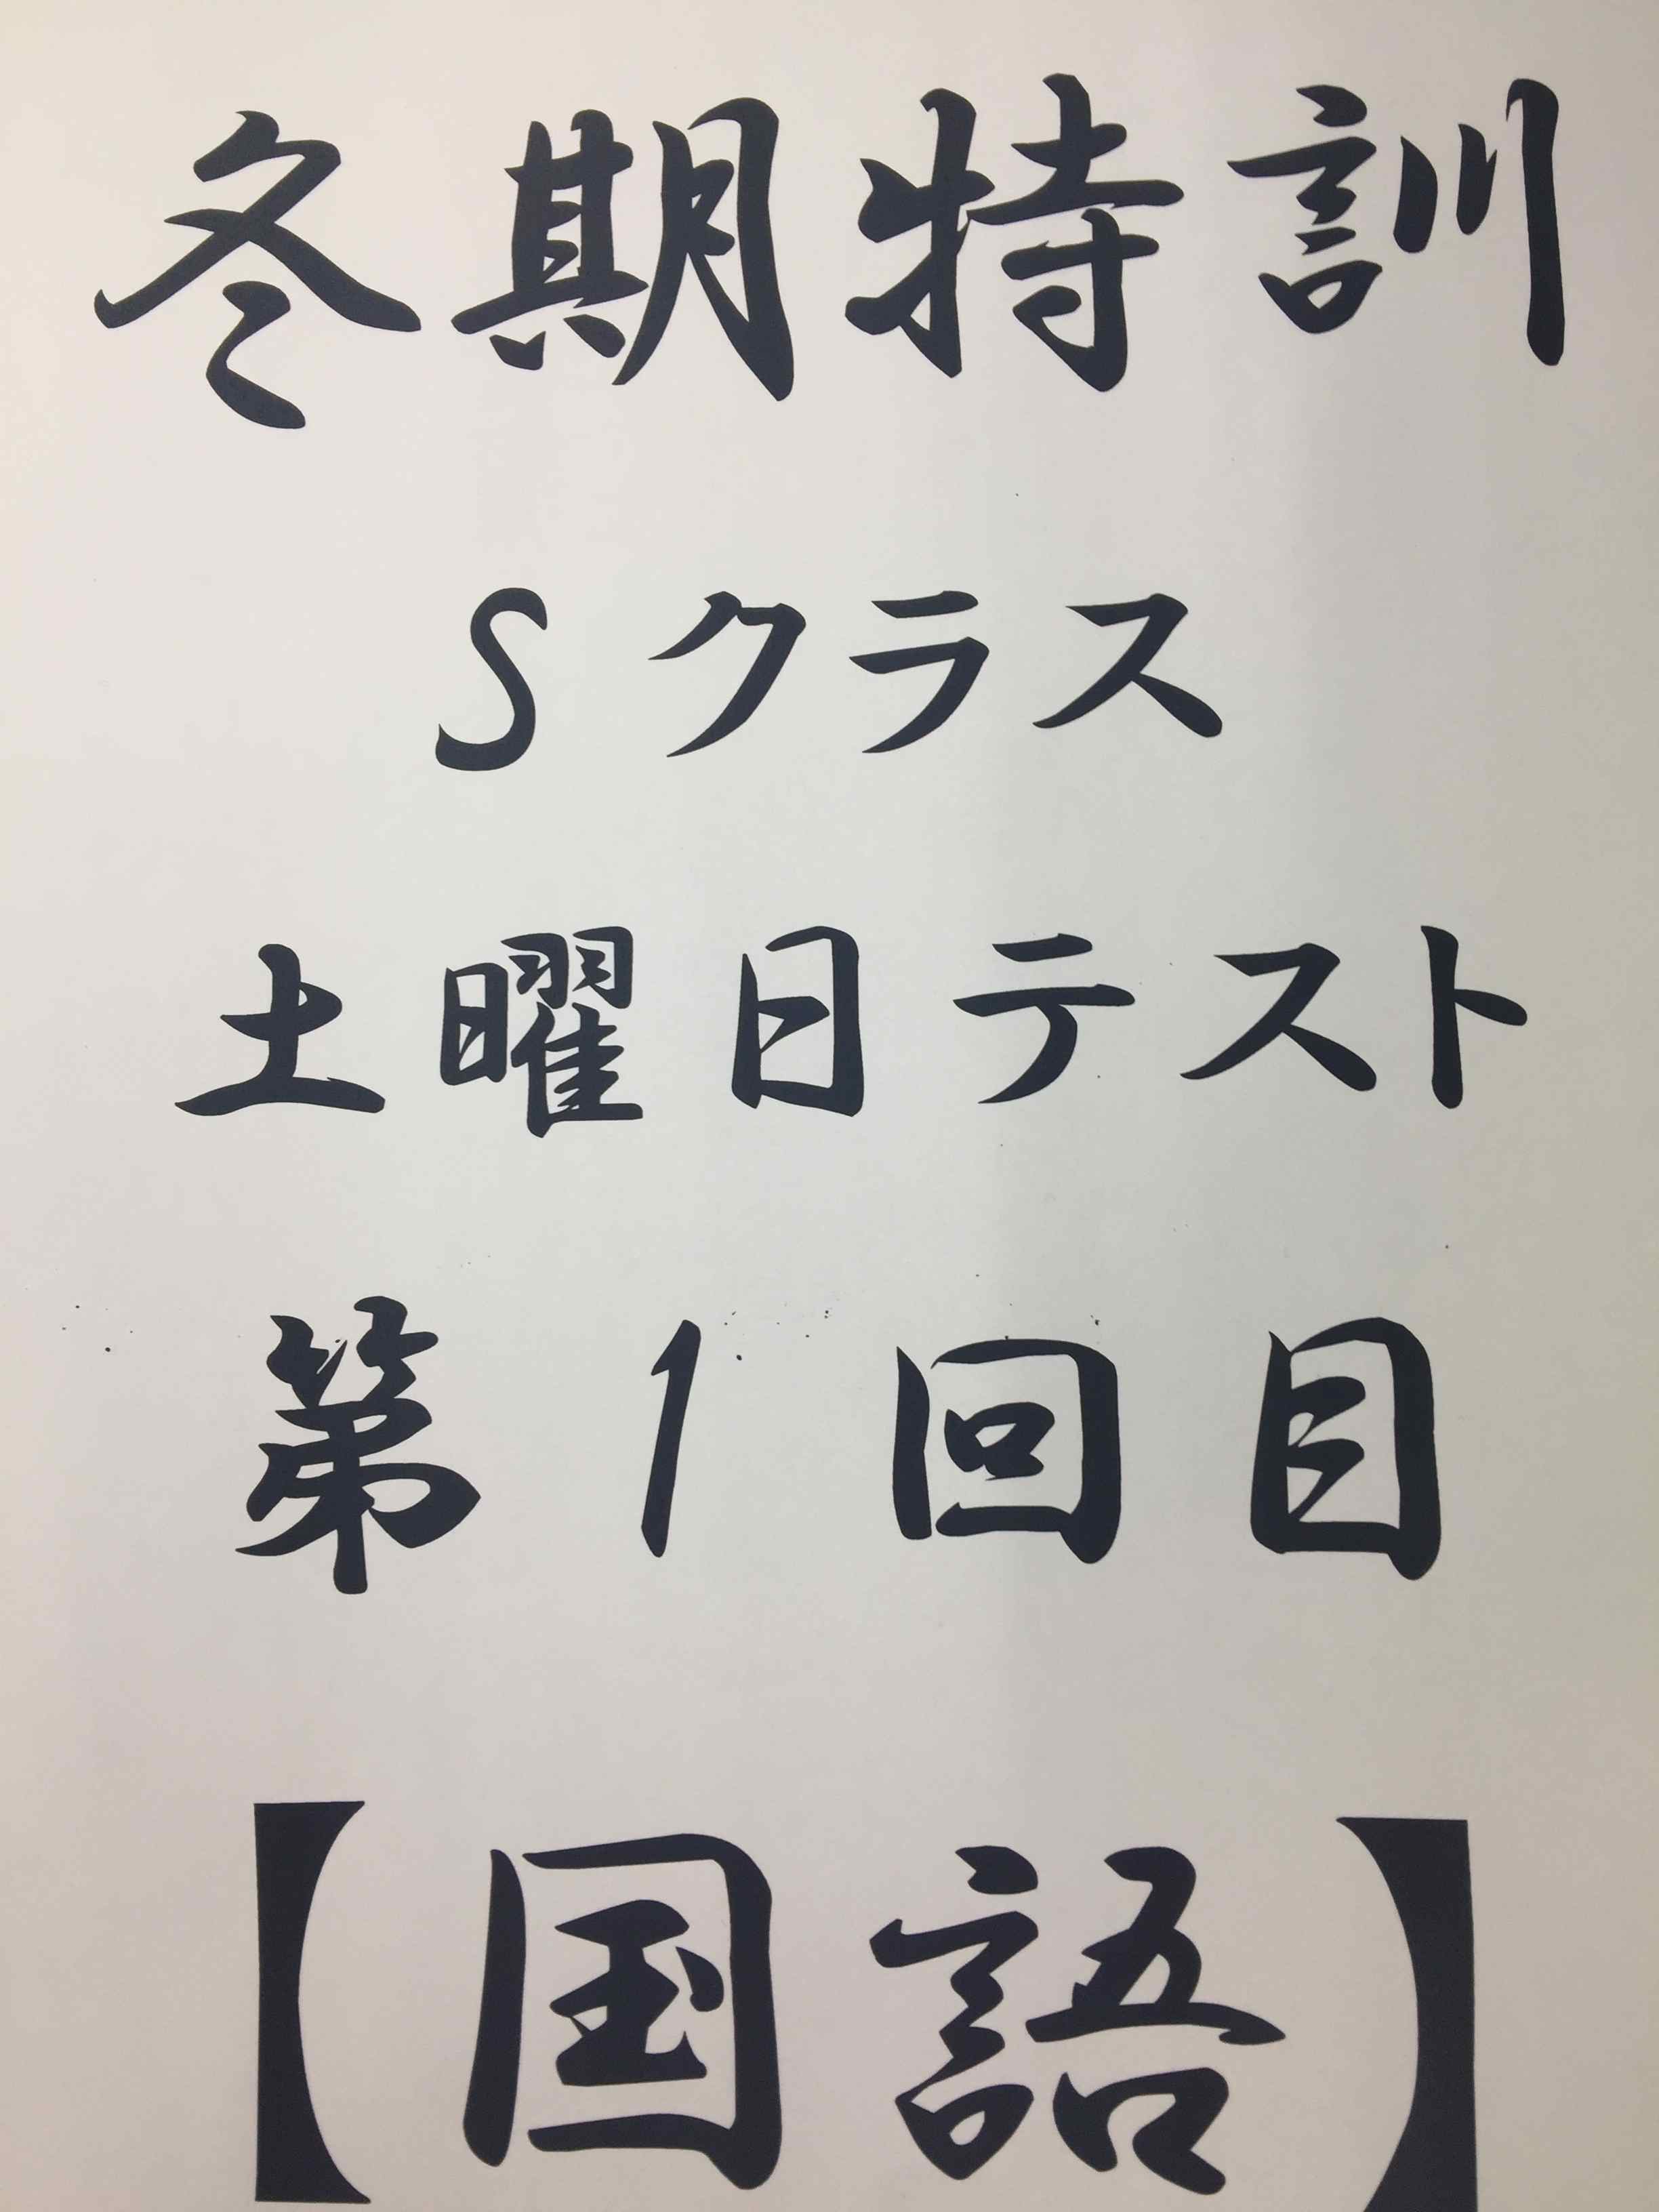 冬期特訓
Sクラス
土曜日テスト
第1回目
【国語】